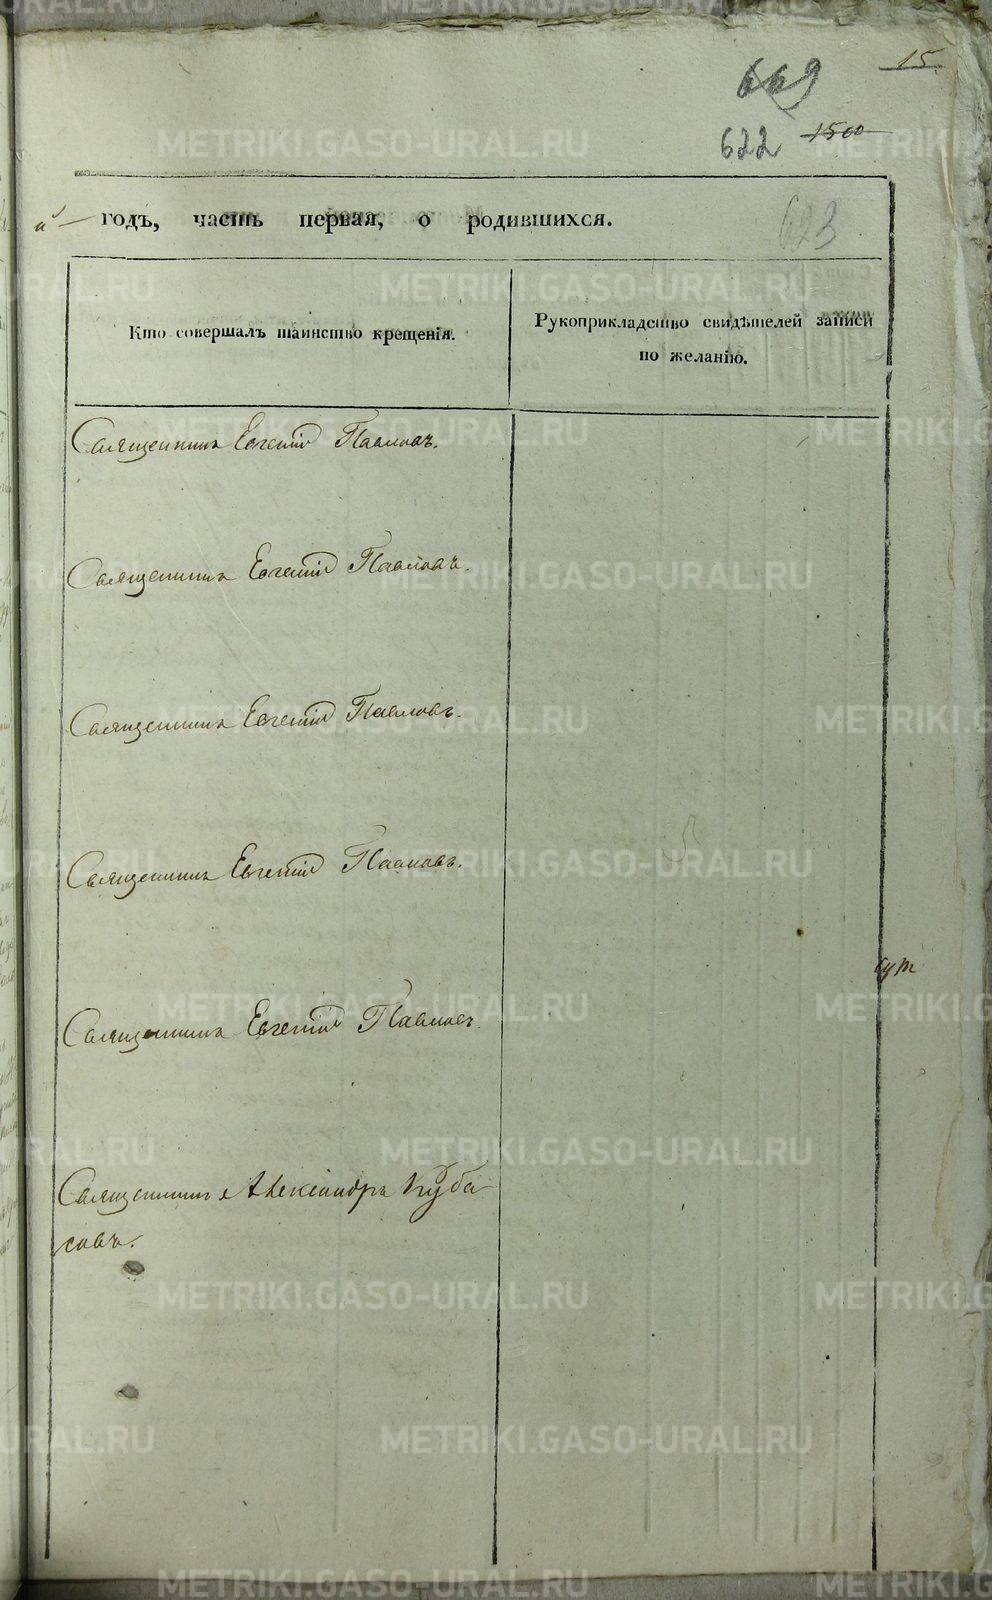 15
669
622 1500
й годъ, часть первая, о родившихся. 623
Кто совершалъ таинство крещенія.
Рукоприкладство свидѣтелей записи
по желанію.
Священникъ Евгений Павловъ.
Священникъ Евгений Павловъ.
Священникъ Евгений Павловъ.
Священникъ Евгений Павловъ.
Священникъ Евгений Павловъ.
Священникъ Александръ Куба
совъ.
METRIKI.GASO-URAL.RU